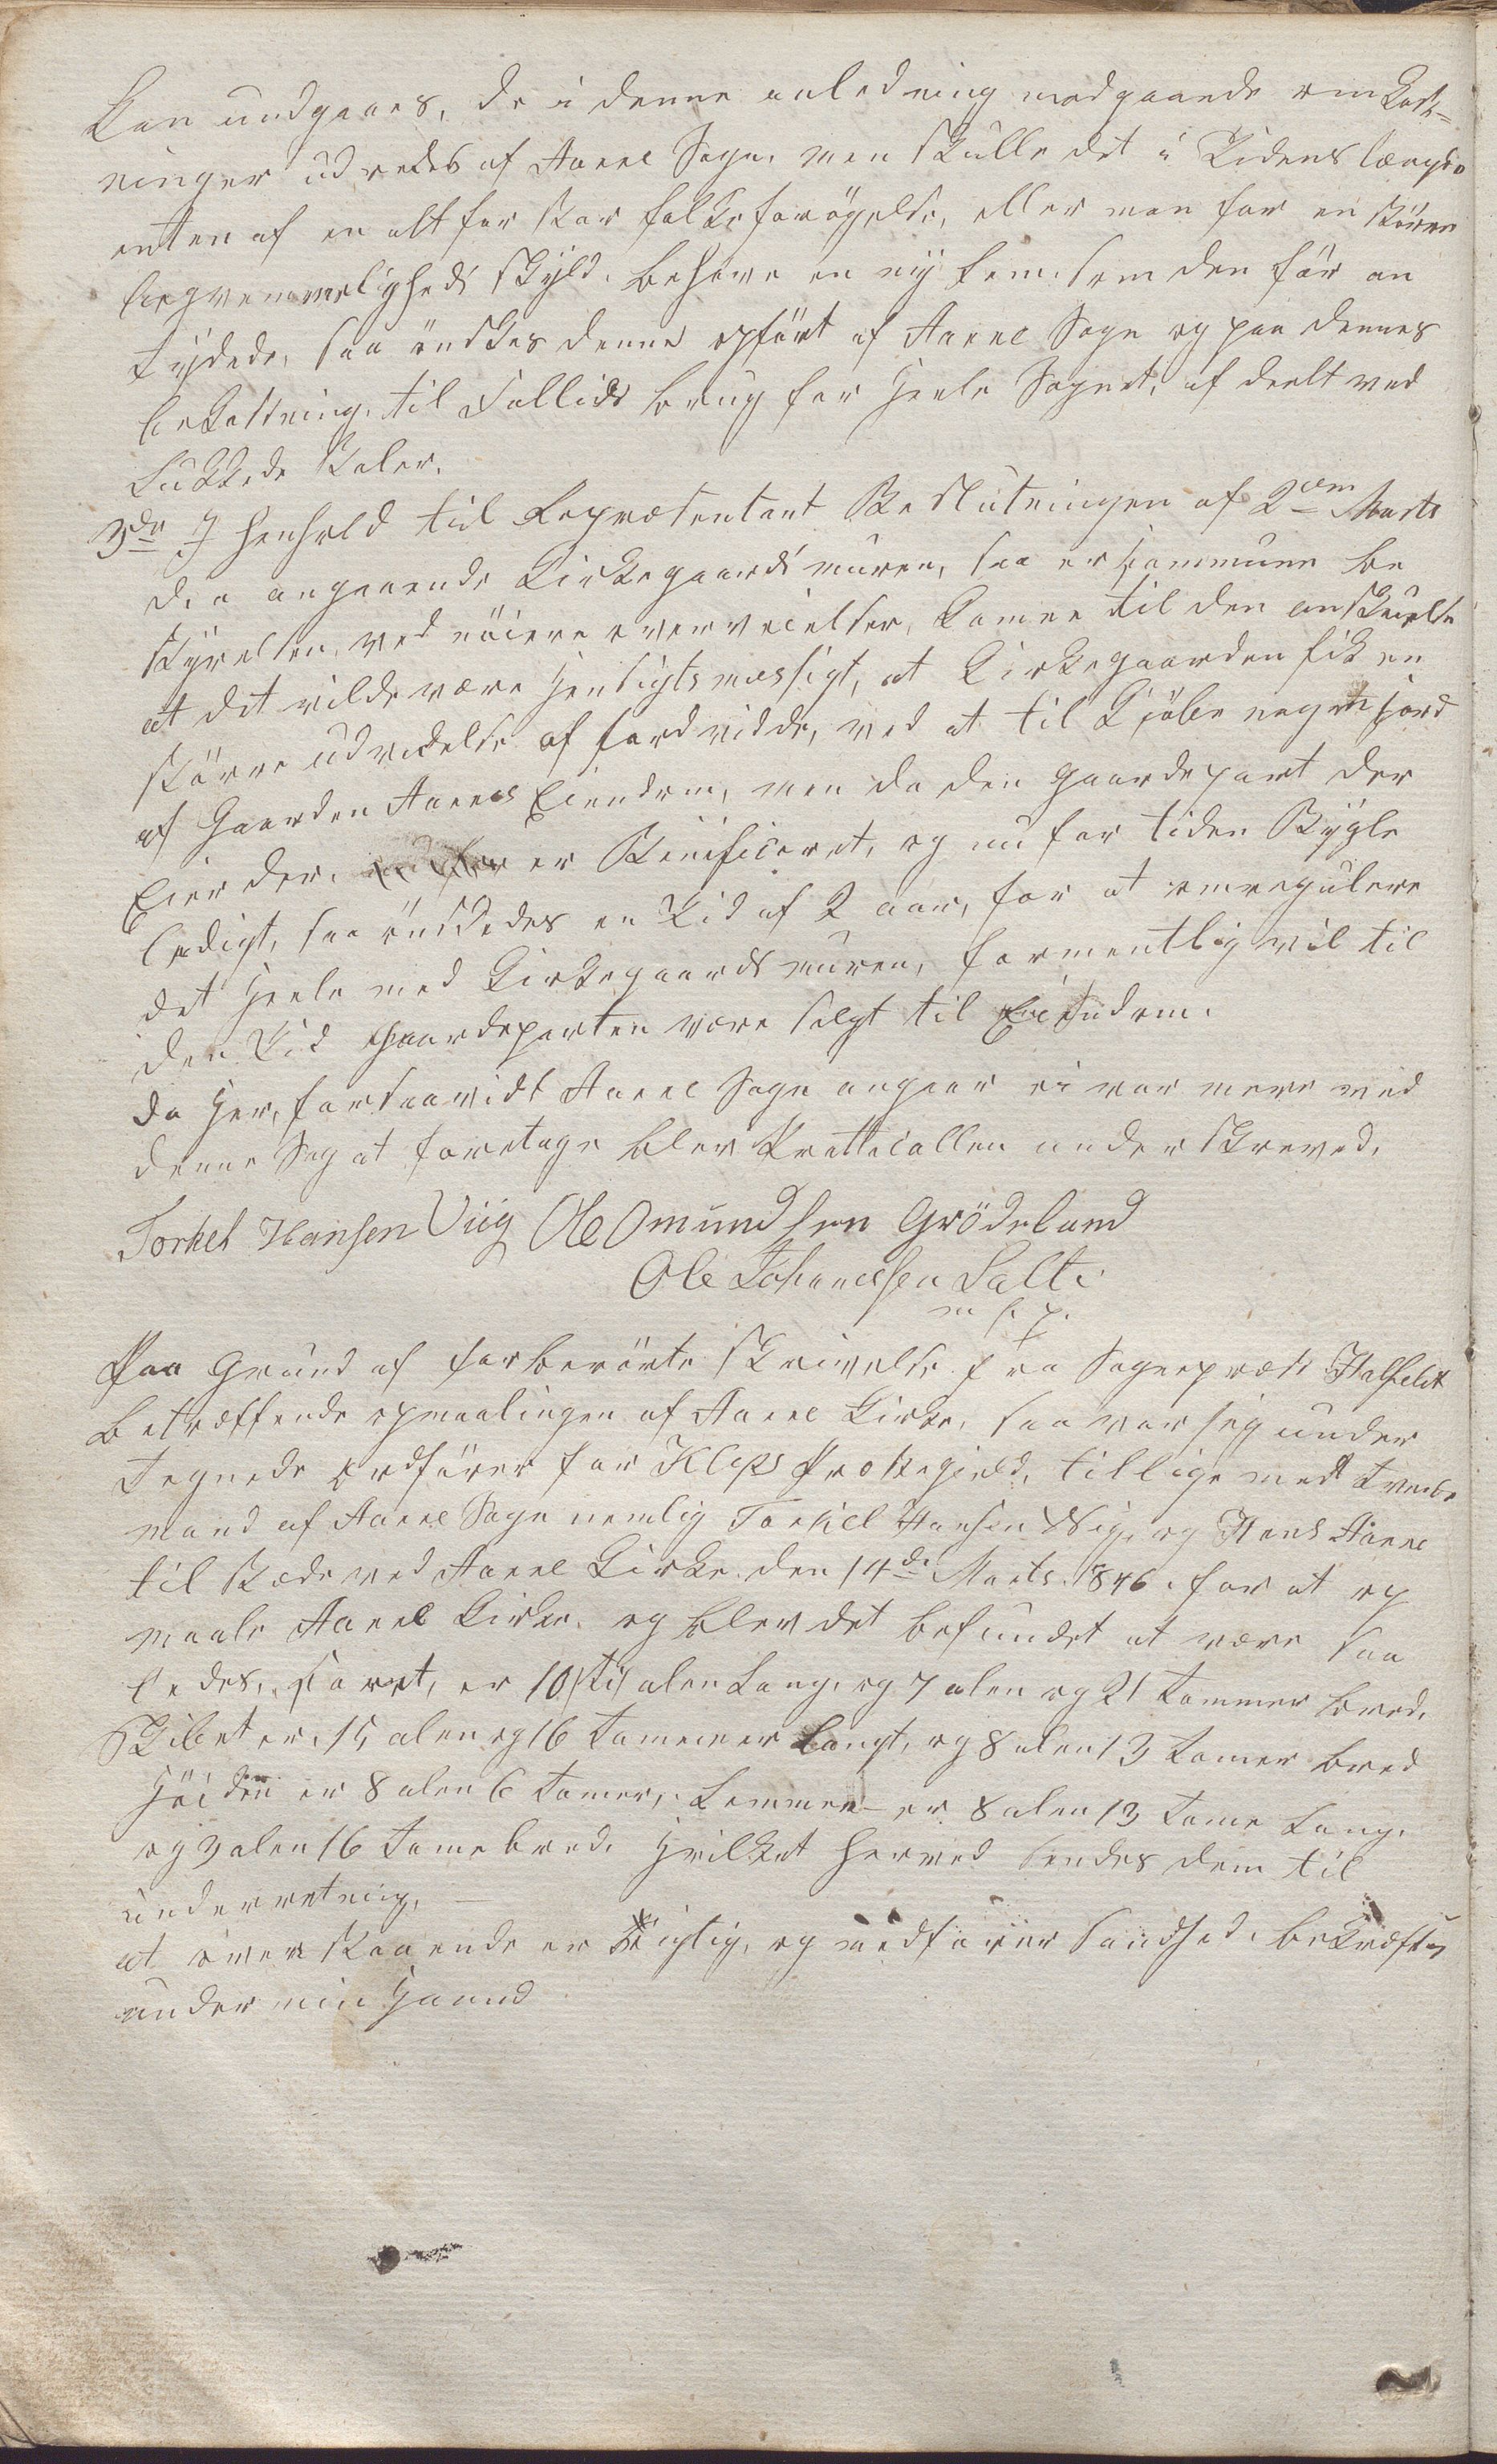 kan undgaaes, de i denne anledning medgaaende omkost=
ninger udredes af Aarre Sogn, men skulle det i Tidens længde
enten af en alt for stor folkeforøgelse, eller man for en større
beqvemmeligheds skyld. behøve en ny Lem. som den før an
tydede, saa ønskes denne opført af Aarre Sogn og paa dennes
bekostning. til Fællids brug for heele Sognet, af deelt ved
lukkede Stoler.
3de I henhold til Repræsentant Beslutningen af 2den Marts
d. a angaaende Kirkegaards muren, saa er Commune be
styrelsen, ved nøiere overveielser, komne til den anskuelse
at det vilde være hensigtsmessigt, at Kirkegaarden fik en
større udvidelse af jordvidde, ved at til Kjøbe nogen jord
af Gaarden Aarres Eiendom, men da den gaardepart der
Eier der. er Benificeret, og nu for tiden Bygle
ledigt, saa ønskedes en Tid af 2 aar, for at omregulere
det heele med Kirkegaards muren, formentlig vil til
den Tid Gaardeparten være solgt til Eiendom.
da her, forsaavidt Aarre Sogn angaar ei var mere ved
denne Sag at foretage blev Prottecollen underskreved.
Torkel Hansen Viig Ole Omundsen Grödeland
Ole Johanessen Salte
m. f. p.
Paa Grund af forberörte skrivelse fra Sognepræst Halfeldt
betræffende opmaalingen af Aarre Kirke, saa var jeg under
tegnede ordfører for Klips Prestegield, tillige med tvende
mand af Aarre Sogn nemlig Torkel Hansen Wig, og Hans Aarre
til stæde ved Aarre Kirke. den 14de Marts. 1846. for at op
maale Aarre Kirke. og blev det befundet at være saa
ledes, Koret, er 10 /ti/ alen Lang, og 7 alen og 21 tommer bred,
Skibet er. 15 alen og 16 tommer langt, og 8 alen 13 tomer bred
høiden er 8 alen 6 tomer, Lemmen er 8 alen 13 tome Lang.
og 3 alen 16 tome bred. hvilket herved sendes dem til
underretning, —
at overstaaende er rigtig, og medfører sandhed. bekræftes
under min haand